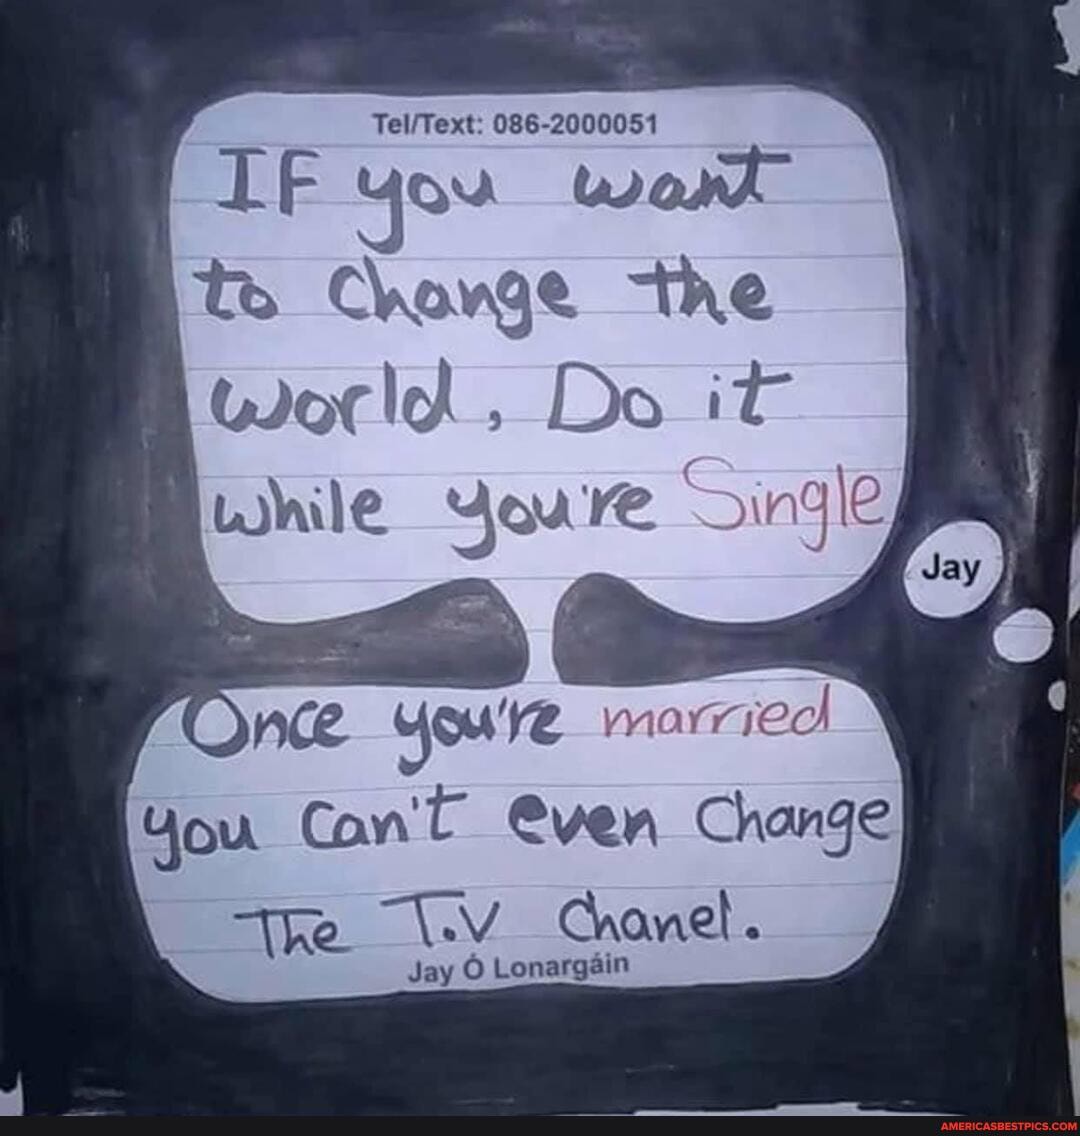 Tel/Text: 086-2000051
IF you want
to Change the
world, Do it
while you're Single
Jay
Once you're married
you Can't even Change
The T.V Chanel.
Jay Ó Lonargáin
AMERICASBESTPICS.COM